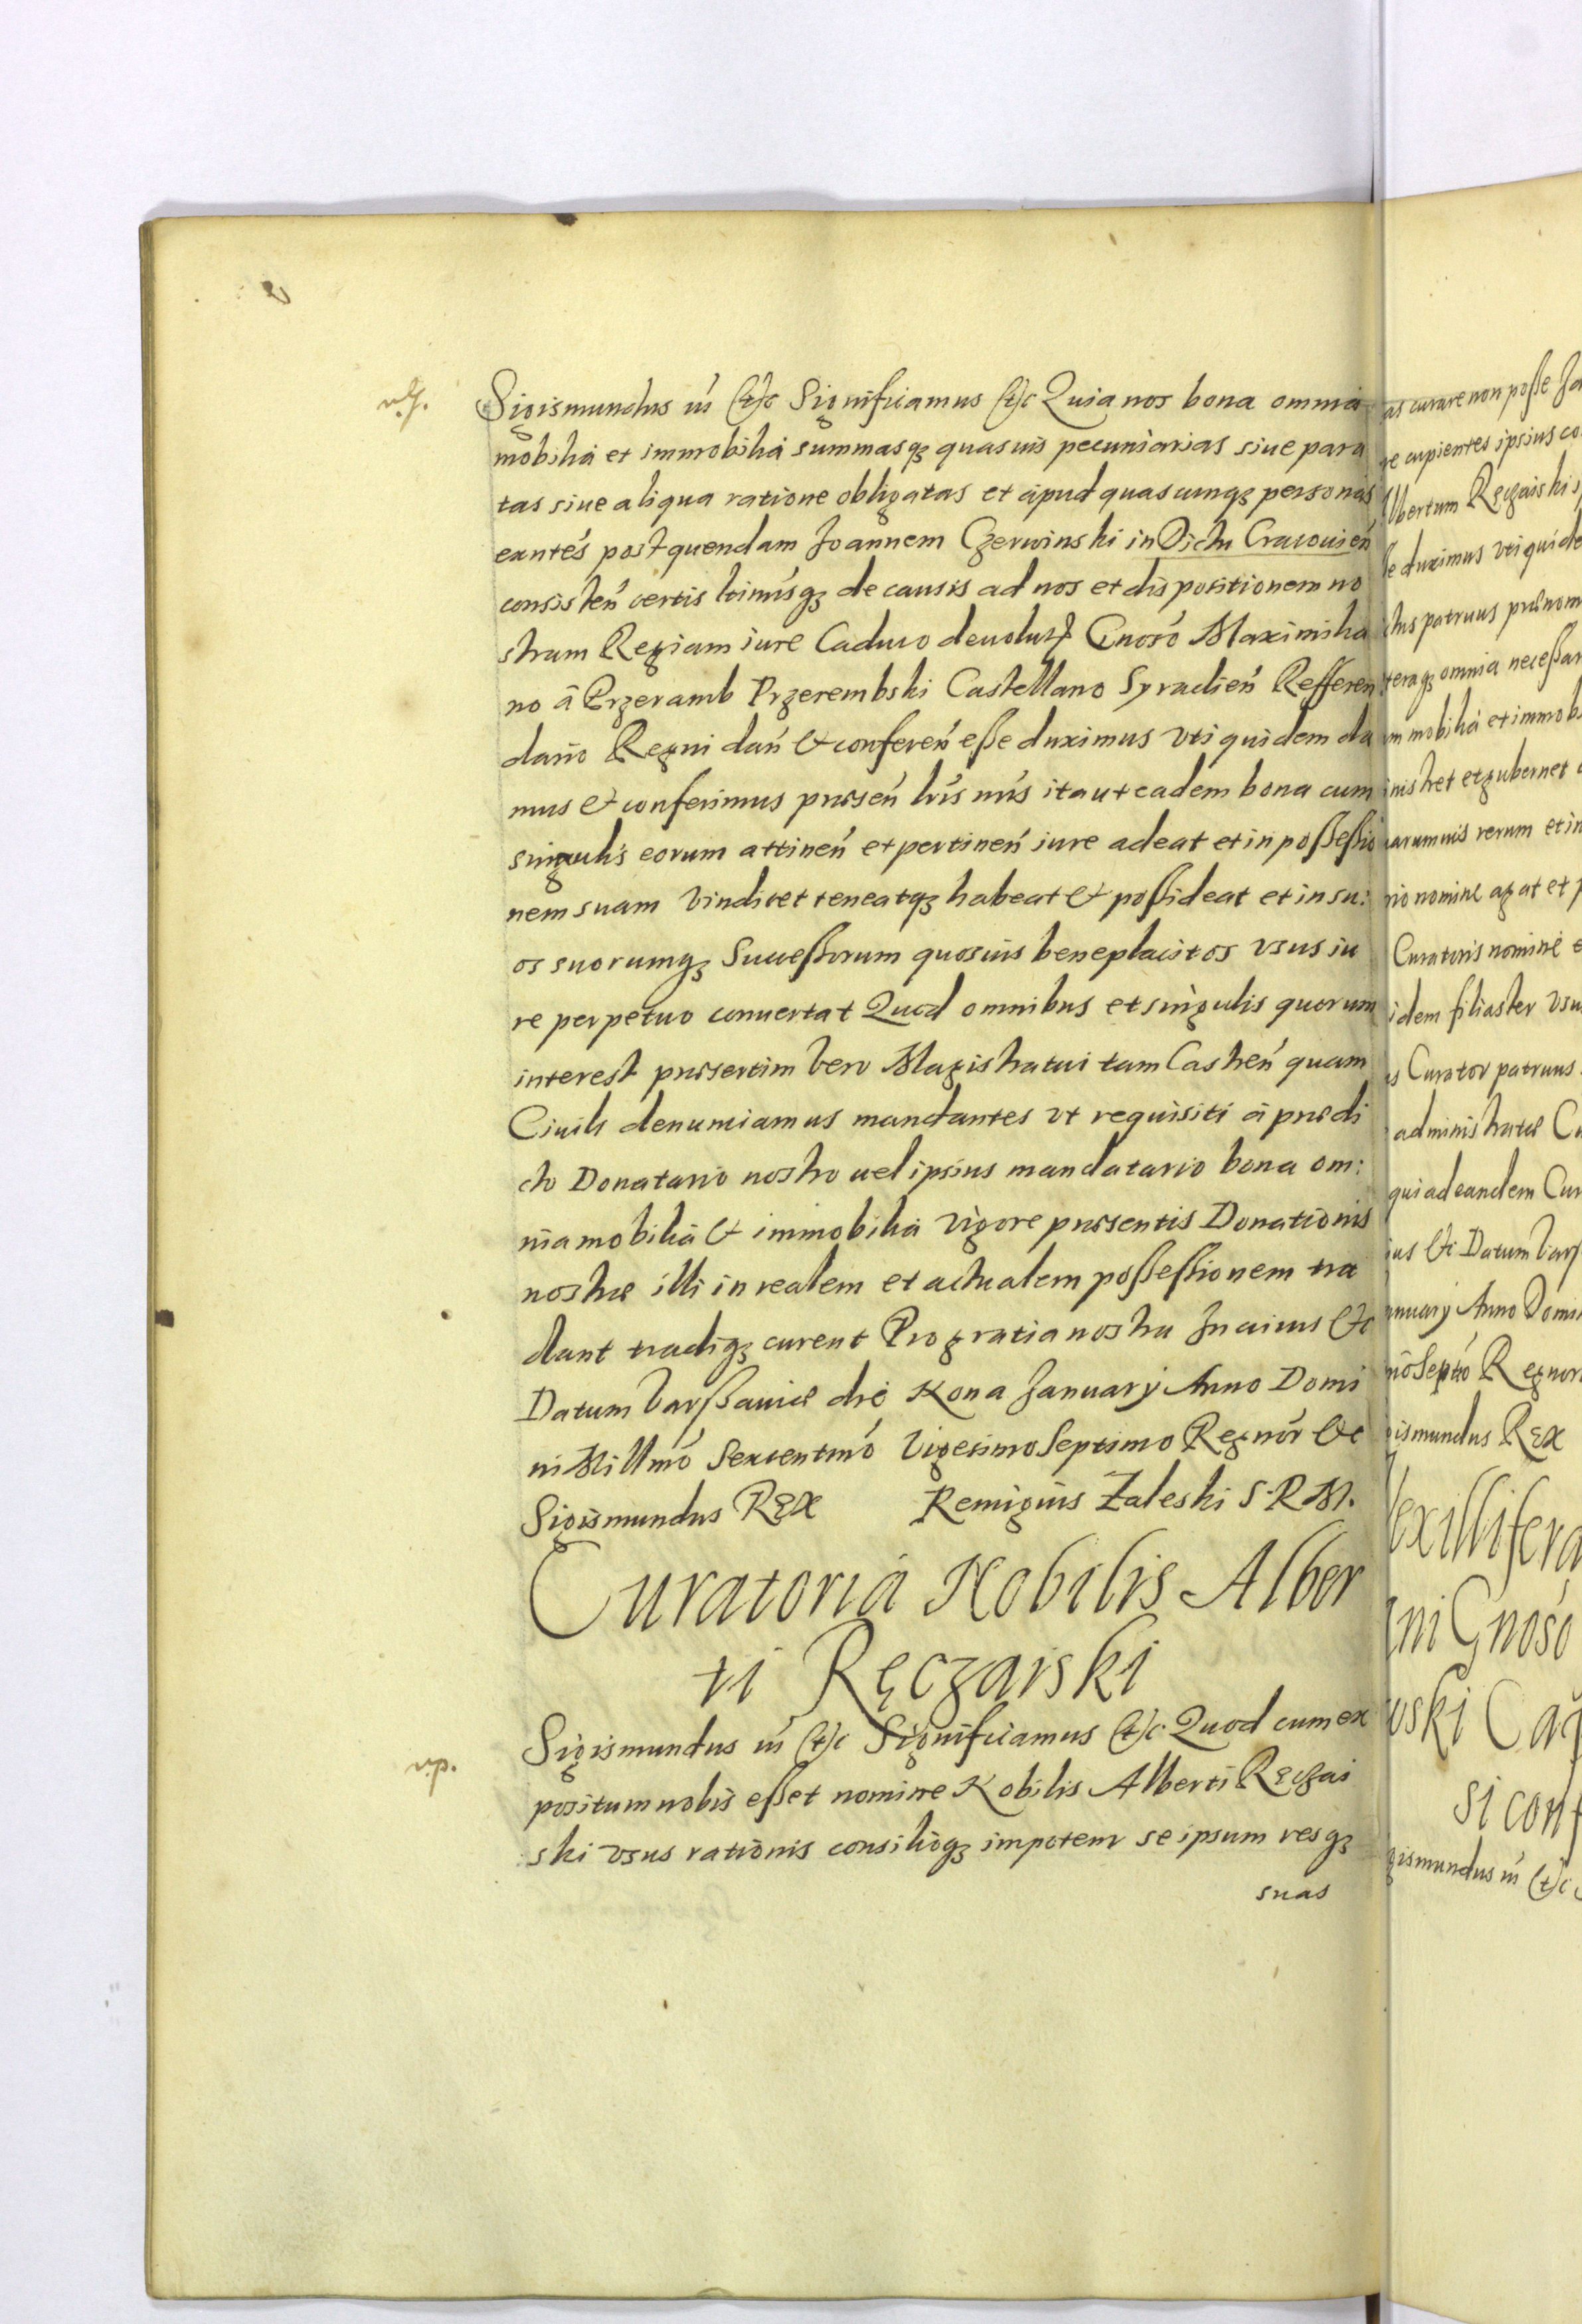 Sigismundus iii &c Significamus &c Quia nos bona omnia
mobilia et immobilia summasqꝫ quasuis pecuniarias siue para
tas siue aliqua ratione obligatas et apud quascunqꝫ personas
exntes post quendam Joannem Czerwinski in Dictu Cracouien
consisten certis ltimisqꝫ de causis ad nos et dispositionem no
stram Regiam iure Caduco deuolut Gnoso Maximilia
no à Przeramb Przerembski Castellano Syradien Refferen
dario Regni dan & conferen eße duximus vti quidem da
mus & conferimus præsen lris nris ita ut eadem bona cum
singulis eorum attinen et pertinen iure adeat et in poßeßio
nem suam vindicet teneatqꝫ habeat & poßideat et in su:
os suorumqꝫ Succeßorum quosuis beneplacitos vsus iu
re perpetuo conuertat Quod omnibus et singulis quorum
interest præsertim vero Magistratui tam Castren quam
Ciuili denunciamus mandantes vt requisiti à prædi
cto Donatario nostro uel ipsius mandatario bona om:
nia mobilia & immobilia vigore præsentis Donationis
nostræ illi in realem et actualem poßeßionem tra
dant tradiqꝫ curent Pro gratia nostra In cuius &c
Datum Varßauiæ die Nona January Anno Domi
ni Millmo Sexcentmo Vigesimo Septimo Regnor &c
Sigismundus REX Remigius Zaleski S. R. M.
Curatoria Nobilis Alber
ti Ręczaiski
Sigismundus iii &c Significamus &c Quod cum ex
positum nobis eßet nomine Nobilis Alberti Ręczai
ski vsus rationis consilioqꝫ impotem se ipsum resqꝫ
suas
as curare non poße
re cupientes ipsius co
lbertum Ręczaiski
e duximus vti quide
ctus patruus prænom
teraqꝫ omnia neceßar
m mobilia et immob
nistret et gubernet
arumuis rerum et in
rio nomine agat et p
Curatoris nomine
idem filiaster vsu
s Curator patruus
administratæ Cu
qui ad eandem Cur
ius &c Datum Varß
anuary Anno Domi
mo Septo Regnor
gismundus REX
Vexillifera
ni Gnoso
wski Ca
si conf
gismundus iii &c